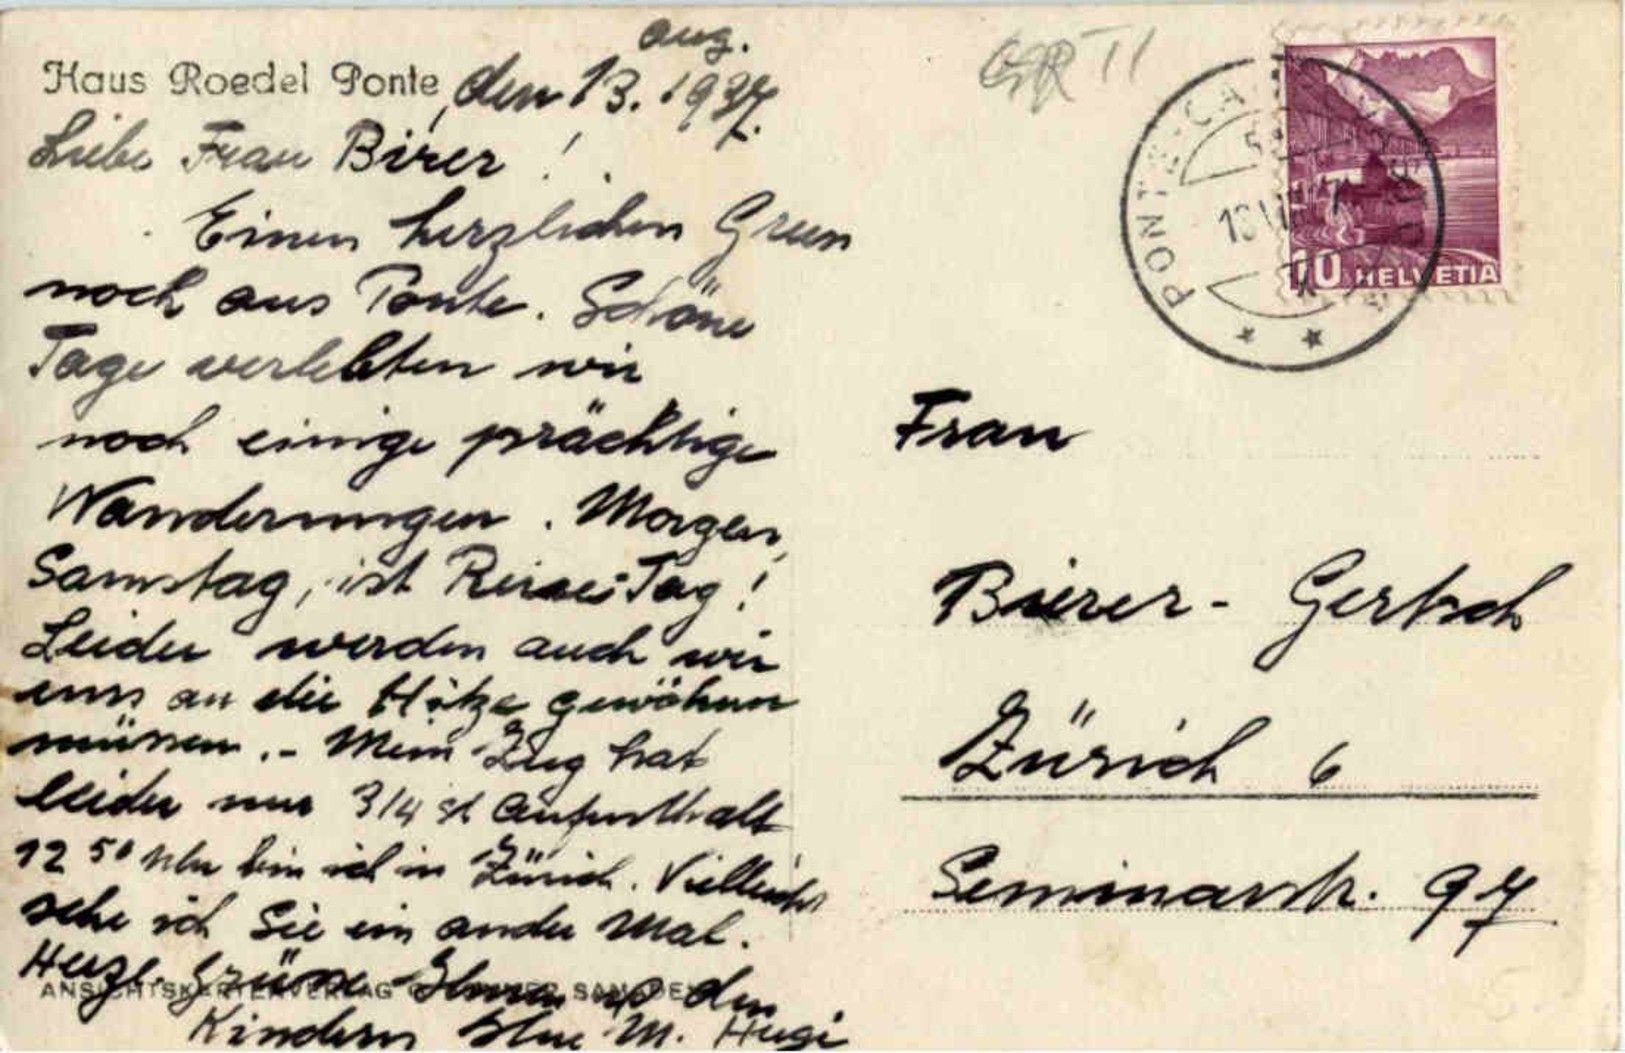 Haus Roedel Ponte, den 13. Aug. 1937.
Liebe Frau Birer!
Einen herzlichen Gruss
noch aus Ponte. Schöne
Tage verlebten wir
noch einige prächtige
Wanderungen. Morgen,
Samstag, ist Reise-Tag!
Leider werden auch wir
uns an die Hitze gewöhnen
müssen.- Mein Zug hat
leider nur 3/4 st Aufenthalt
12 50 Uhr bin ich in Zürich. Vielleicht
sehe ich Sie ein ander Mal.
Herzl. Grüsse Ihnen und den
Kindern Ihre M. Hugi
ANSICHTSKARTENVERLAG
GR TI
PONTE-CA
10 HELVETIA
Frau
Bierer-Gertsch
Zürich 6
Seminarstr. 97